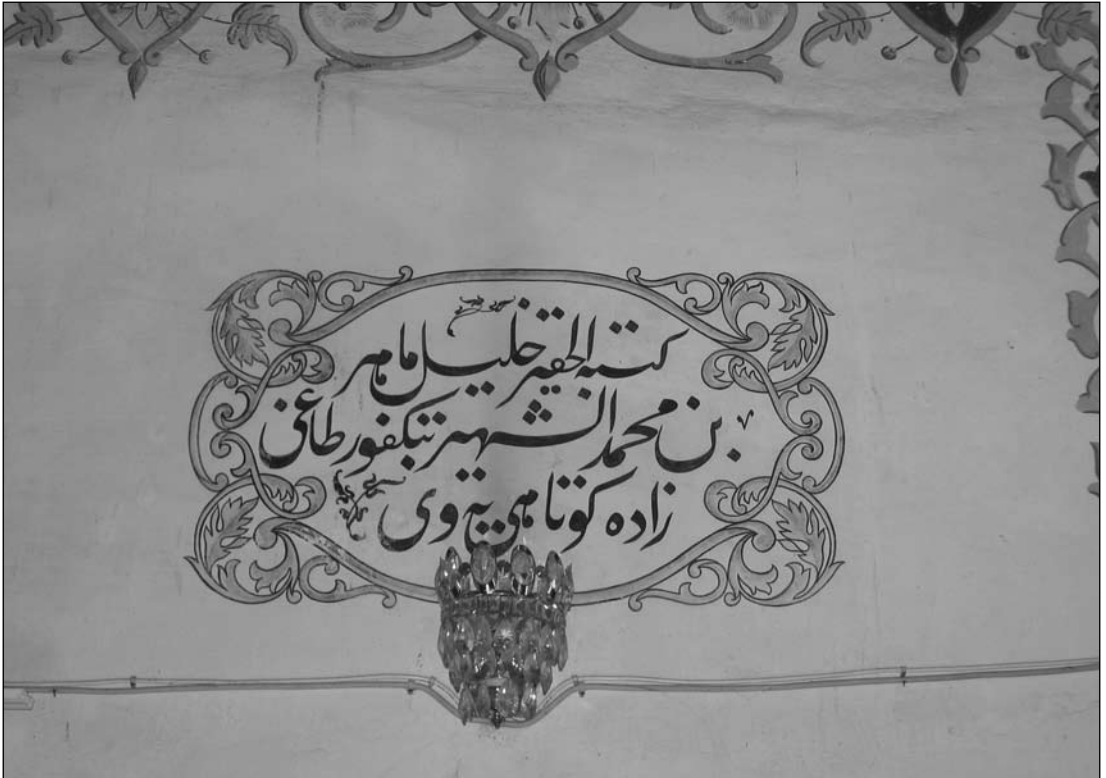 كتبه الحقير خليل ماهر
بن محمد الشهير تكفور طاغى
زاده كوتاهيه وى